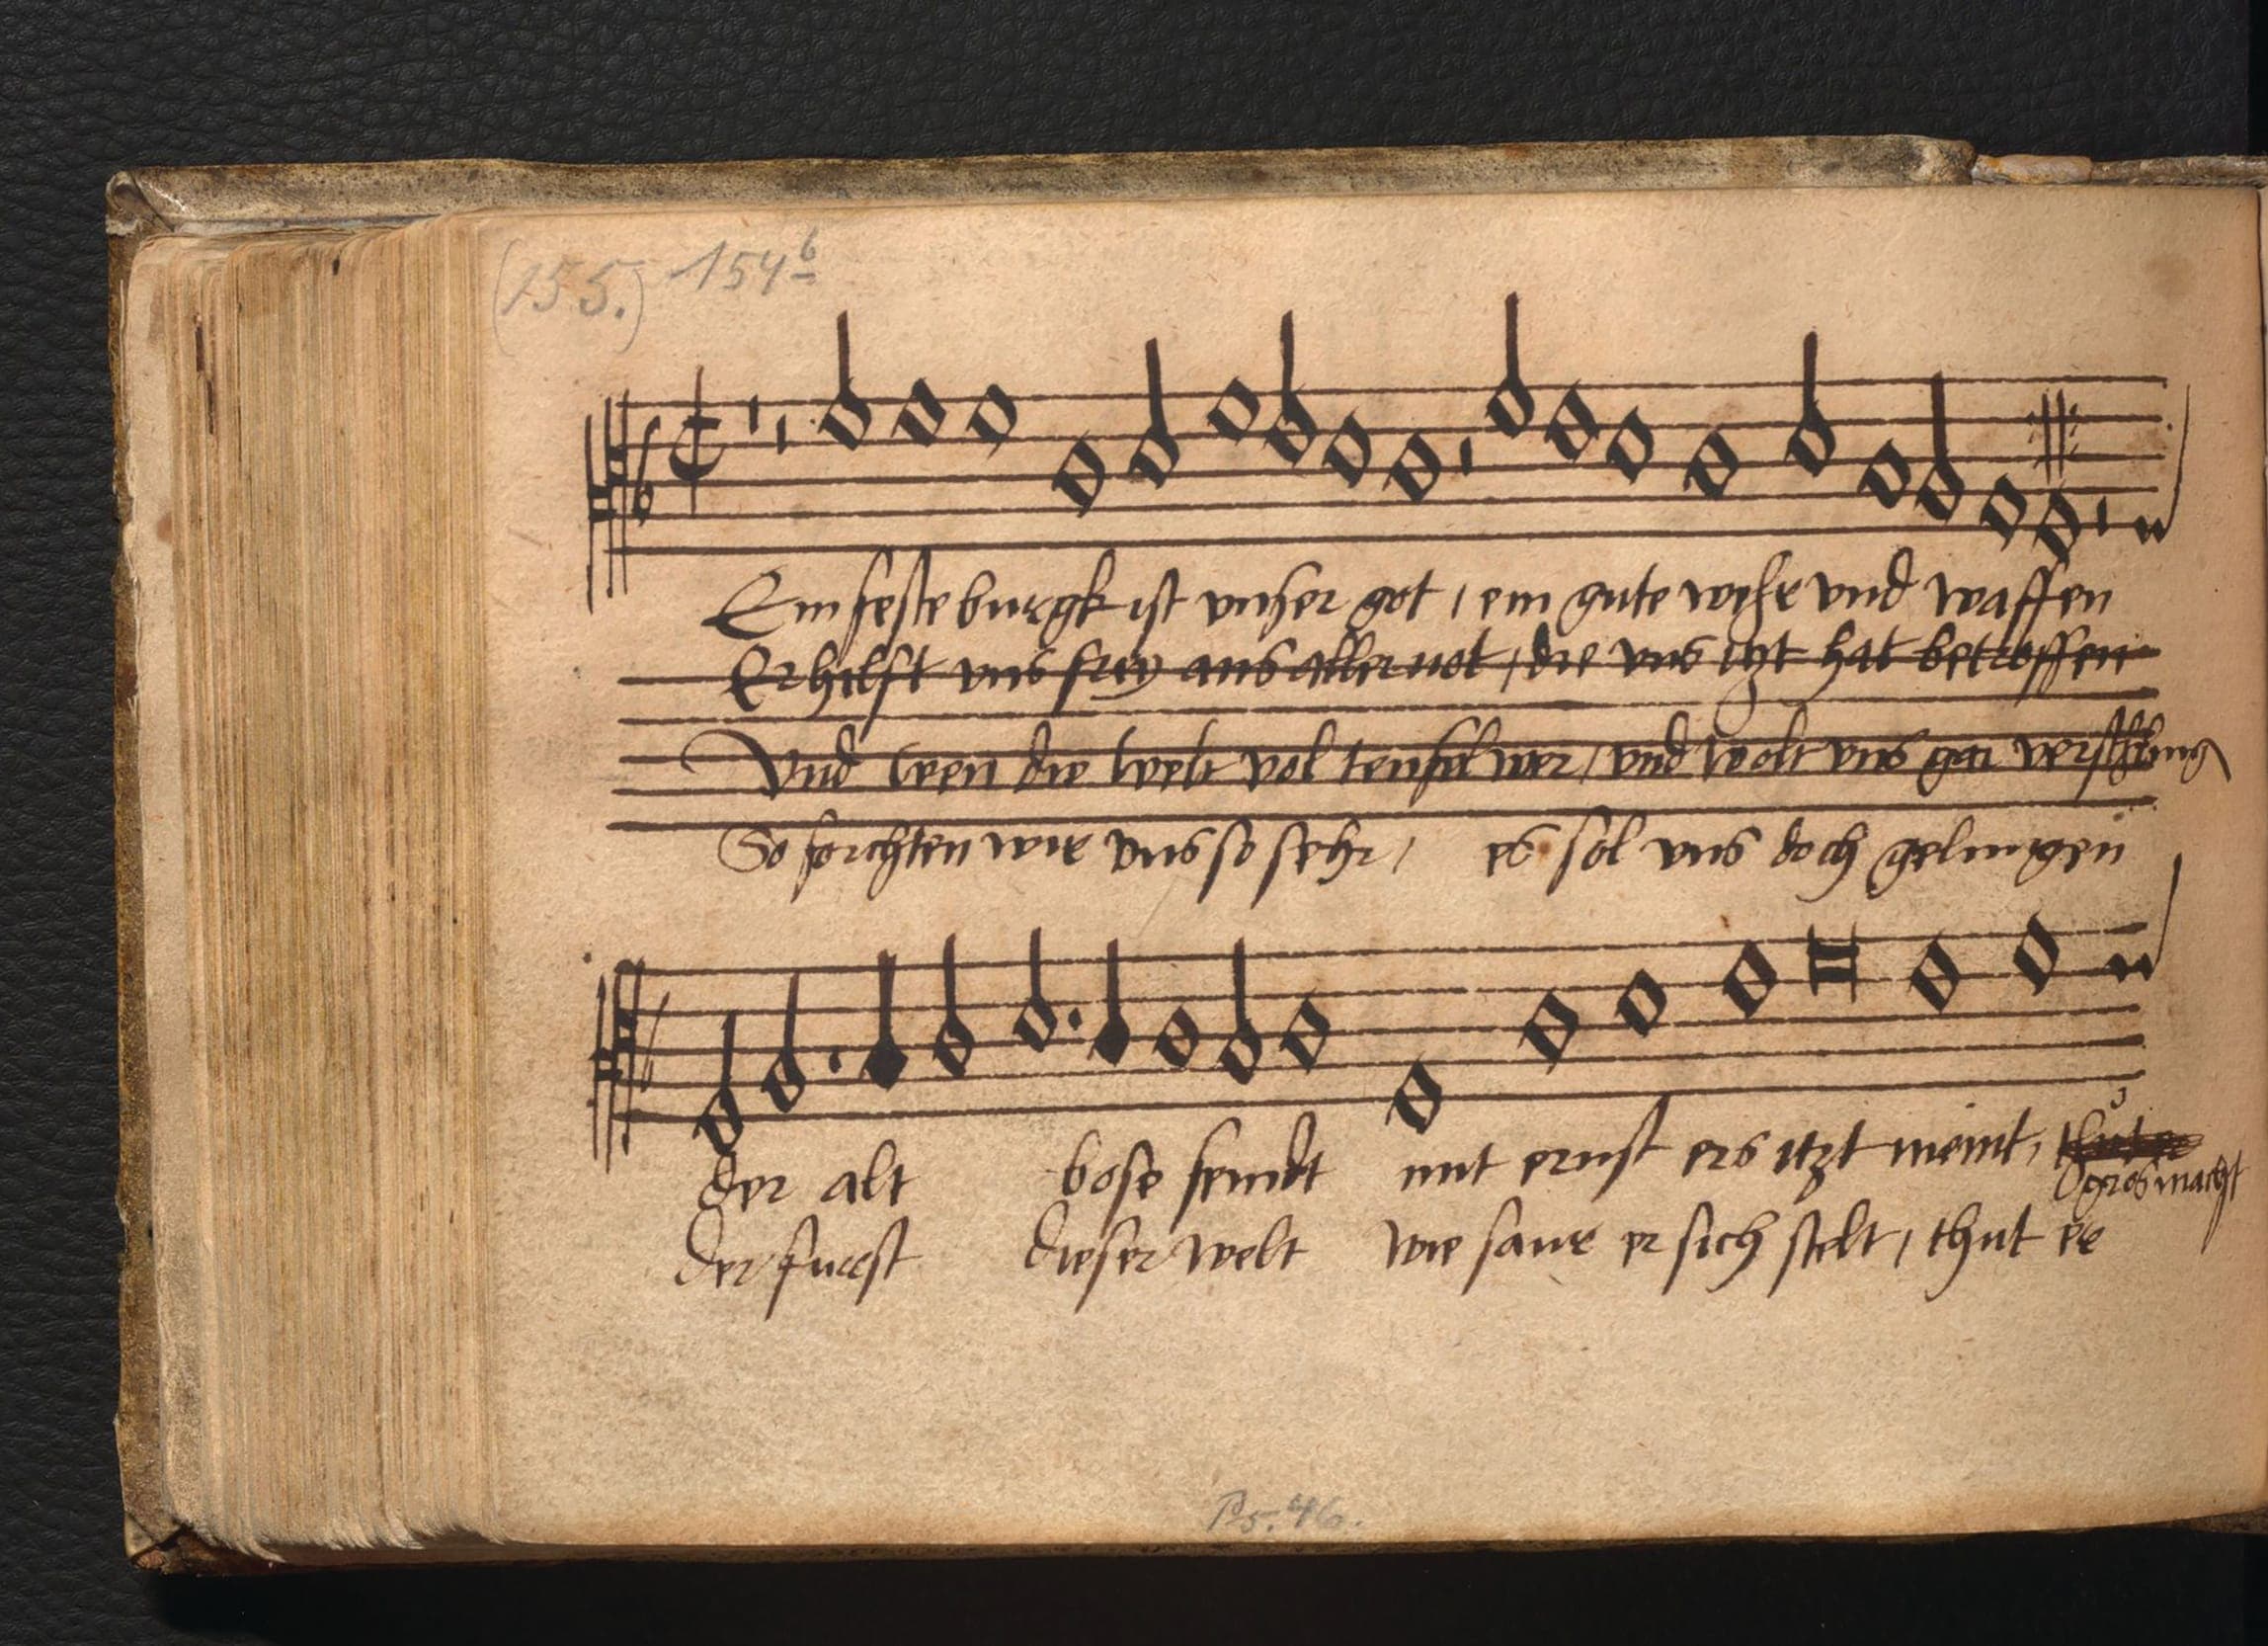 (155.) 154b
Ein feste burgk ist vnser got / ein gute wehr vnd waffen
Er hilft vns frey aus aller not / die vns itzt hat betroffen
Vnd wen die welt vol teuffel wer / vnd wolt vns gar vorschlingen
So forchten wir vns so sehr / es sol vns doch gelingen
der alt bose feindt mit ernst ers itzt meint, thut er
gros macht
der furst dieser welt wie saur er sich stelt / thut er
Ps. 46.